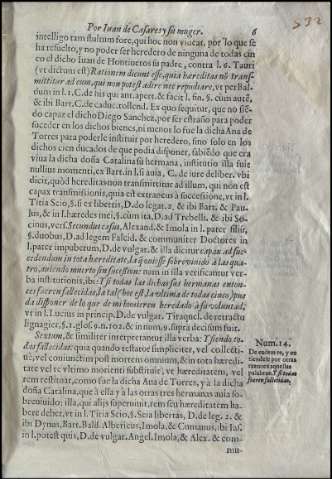 Por Iuan de Casares, y su muger. 6
532
intelligo tam stultum fore, qui hoc non videat, por lo que se
ha resuelto, y no poder ser heredero de ninguna de todas cin
co el dicho Iuan de Hontiueros su padre, contra l. 6. Tauri
(vt dictum est) Rationem dicunt esse, quia hæreditas nō trans-
mittitur ad eum, qui non potest adire nec repudiare, vt per Bal-
dum in l. 1. C. de his qui ant. apert. & facit l. fin. §. cùm autē,
& ibi Bart. C. de caduc. tollend. Ex quo sequitur, que no siē-
do capaz el dicho Diego Sanchez, por ser estraño para poder
suceder en los dichos bienes, ni menos lo fue la dicha Ana de
Torres para poderle instituir por heredero, sino solo en los
dichos cien ducados de que podia disponer, sabiēdo que era
viua la dicha doña Catalina su hermana, institutio illa fuit
nullius momenti, ex Bart. in l. si auia, C. de iure deliber. vbi
dicit, quòd hæreditas non transmittitur ad illum, qui non est
capax transmissionis, quia est extraneus à successione, vt in l.
Titia Seio, §. si ex libertis, D. de legat. 2. & ibi Bart. & Pau-
lus, & in l. hæredes mei, §. cùm ita, D. ad Trebell. & ibi So-
cinus, vers. secundus casus, Alexand. & Imola in l. pater filiis,
§. duobus, D. ad legem Falcid. & communiter Doctores in
l. pater impuberum, D. de vulgar. & illa dicitur capax ad suc-
cedendum in tota hæreditate,
tro, auiendo muerto sin sucession: nam in illa verificantur ver-
ba institutionis, ibi: Y si todas las dichas sus hermanas enton-
ces fueren fallecidas,
da disponer de lo que de mi houieren heredado à su voluntad,
vt in l. Lucius in princip. D. de vulgar. Tiraquel. de retractu
lignagier, §. 1. glos. 9. n. 102. & in nom. 9. supra decisum fuit.
Sextum, & similiter interpretantur illa verba: Y siendo to-
das fallecidas: quia quando testator simpliciter, vel collecti-
uè, vel coniunctim post mortem omnium, & in tota hæredita-
te vel vltimo morienti substituit, vel hæreditatem, vel
rem restituat, como fue la dicha Ana de Torres, y à la dicha
doña Catalina, que à ella y à las otras tres hermanas auia so-
breuiuido: illa, qui aliis superuixit, rem seu hæreditatem ha-
bere debet, vt in l. Titia Seio, §. Seia libertis, D. de leg. 2. &
ibi Dynus, Bart. Bald. Albericus, Imola, & Comanus, ibi Ias.
in l. potest quis, D. de vulgar. Angel. Imola, & Alex. & com-
mu-
Num. 14.
De como se, y en
tiendese por estas
palabras, Y si todas
fueren fallecidas,